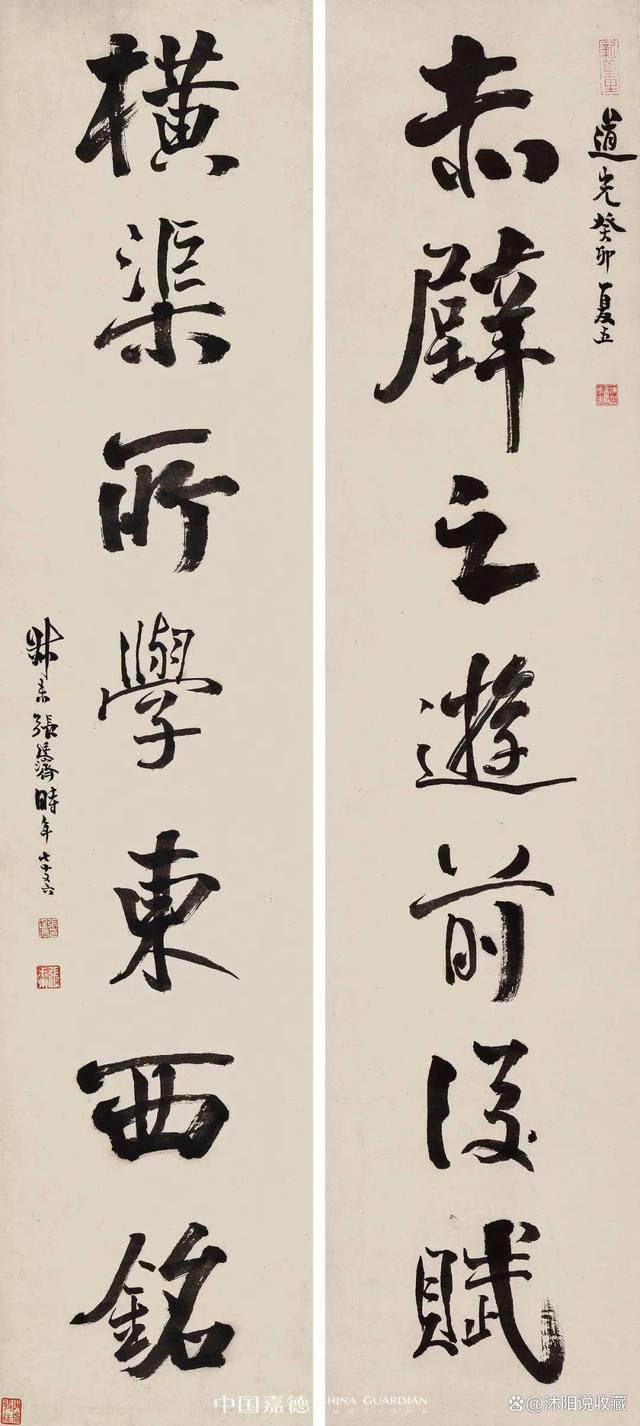 道光癸卯夏五
赤壁之遊前後賦
橫渠所學東西銘
叔未張廷濟時年七十又六
中国嘉德 CHINA GUARDIAN AUCTIONS
@沐阳说收藏